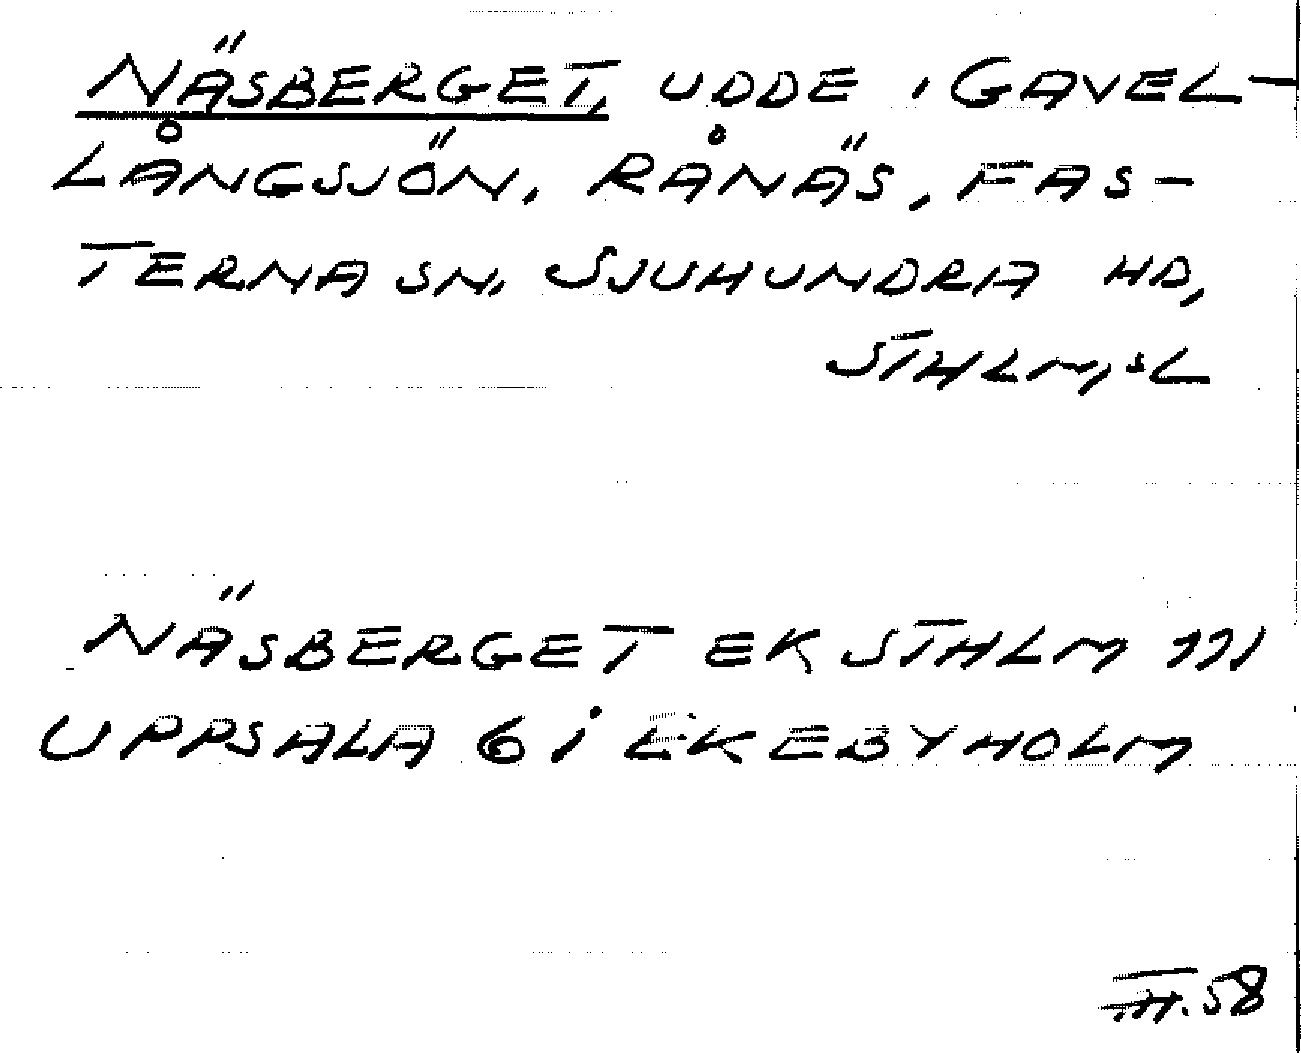 NÄSBERGET, UDDE I GAVEL-
LÅNGSJÖN, RÅNÄS, FAS-
TERNA SN, SJUHUNDRA HD,
STHLM,S L
NÄSBERGET EK STHLM 111
UPPSALA 6 i EKEBYHOLM
TH.58